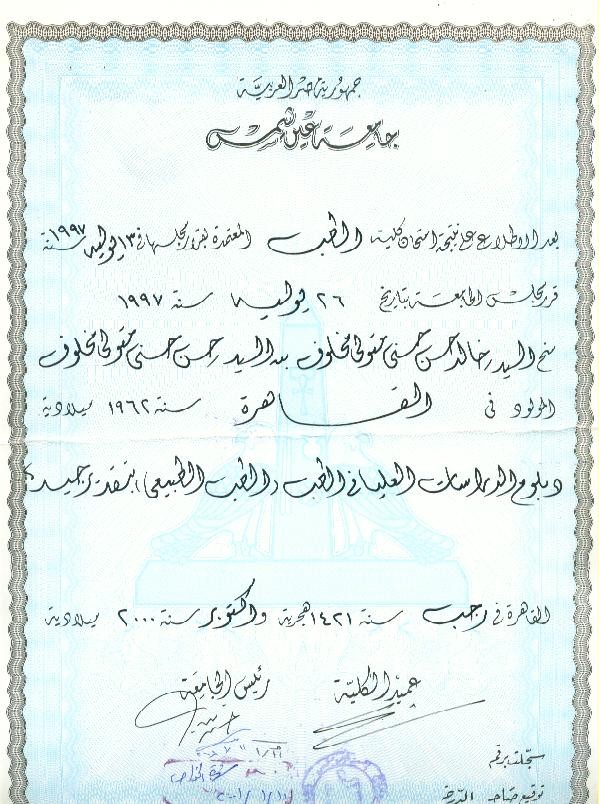 جمهورية مصر العربية
جامعة عين شمس
بعد الاطلاع على نتيجة امتحان كلية الطب المعتمدة بقرار مجلسها في ١٣ يوليه سنة ١٩٩٧
قرر مجلس الجامعة بتاريخ ٢٦ يوليه سنة ١٩٩٧
منح السيد خالد حسن حسني متولي مخلوف بن السيد حسن حسني متولي مخلوف
المولود في القاهرة سنة ١٩٦٢ ميلادية
دبلوم الدراسات العليا في الطب (الطب الطبيعي) بتقدير جيد
القاهرة في رجب سنة ١٤٢١ هجرية و أكتوبر سنة ٢٠٠٠ ميلادية
عميد الكلية رئيس الجامعة
سجلت برقم
توقيع صاحب